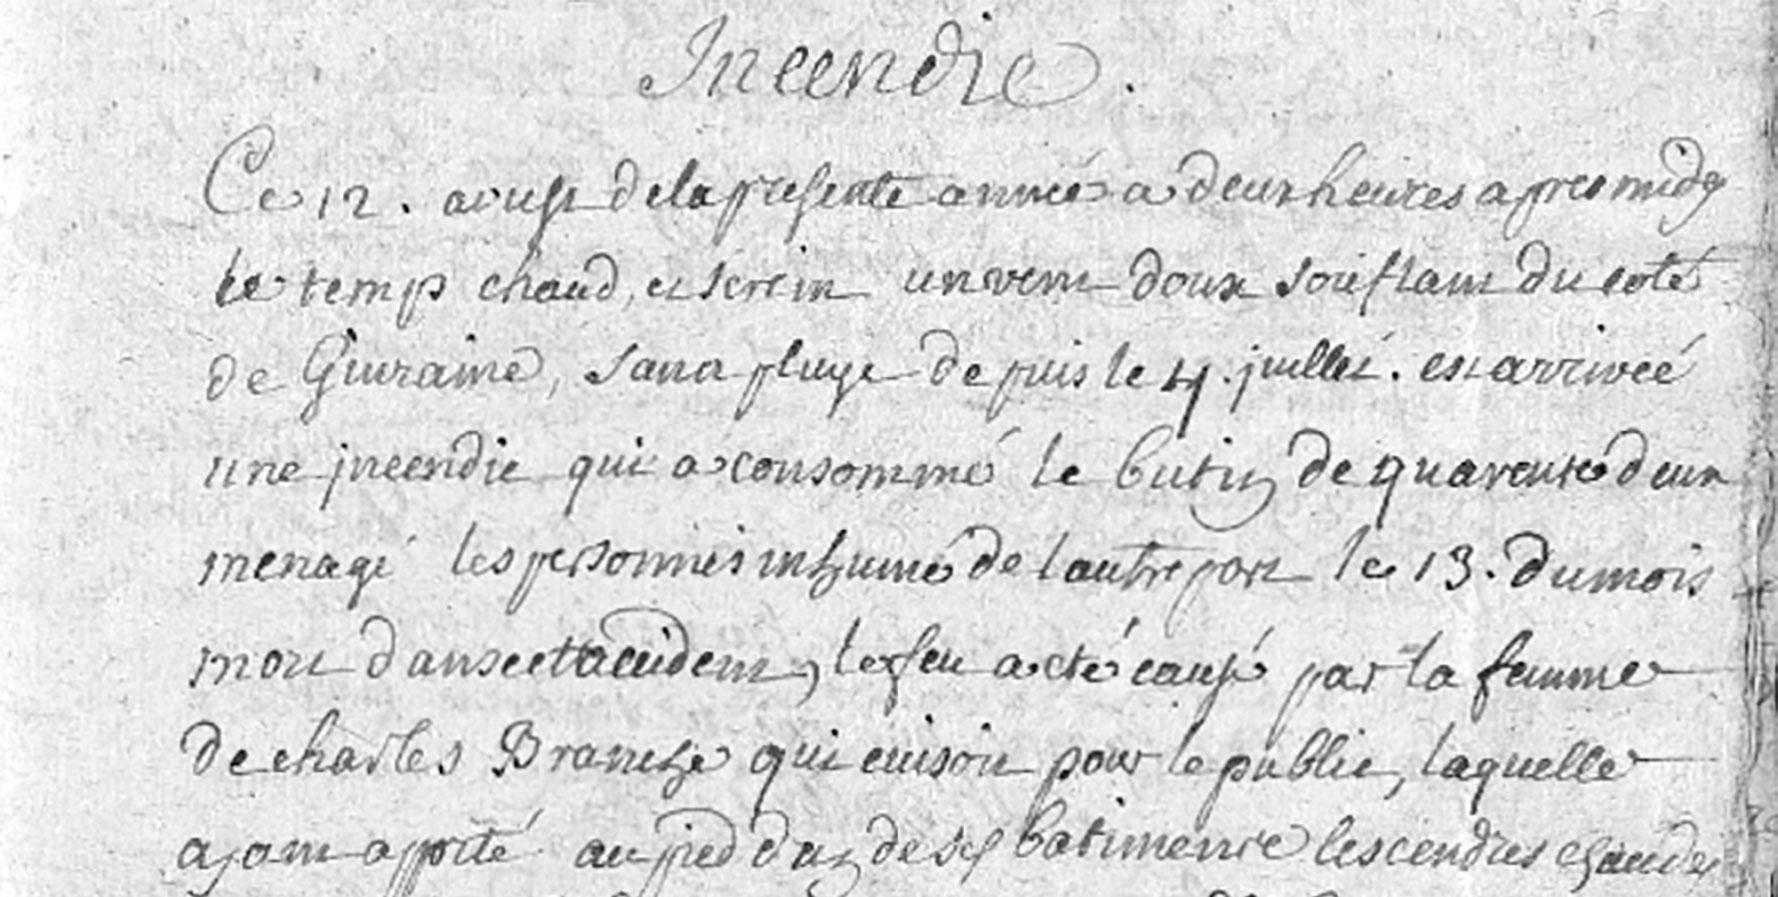 Incendie.
Ce 12. aoust de la presente anneé a deux heures apres midy
le temp chaud, et serein un vent doux souflant du coté
de Guiraine, sans pluye depuis le 4. juillet. est arriveé
une jncendie qui a consommé le butin de quarente deux
menagé les personnes inhumé de l'autre part le 13. du mois
mort dans cett accident, le feu a eté causé par la femme
de charles Branche qui cuisoit pour le public, laquelle
ajant apporté au pied d'un de ses batiments les cendres chaudes